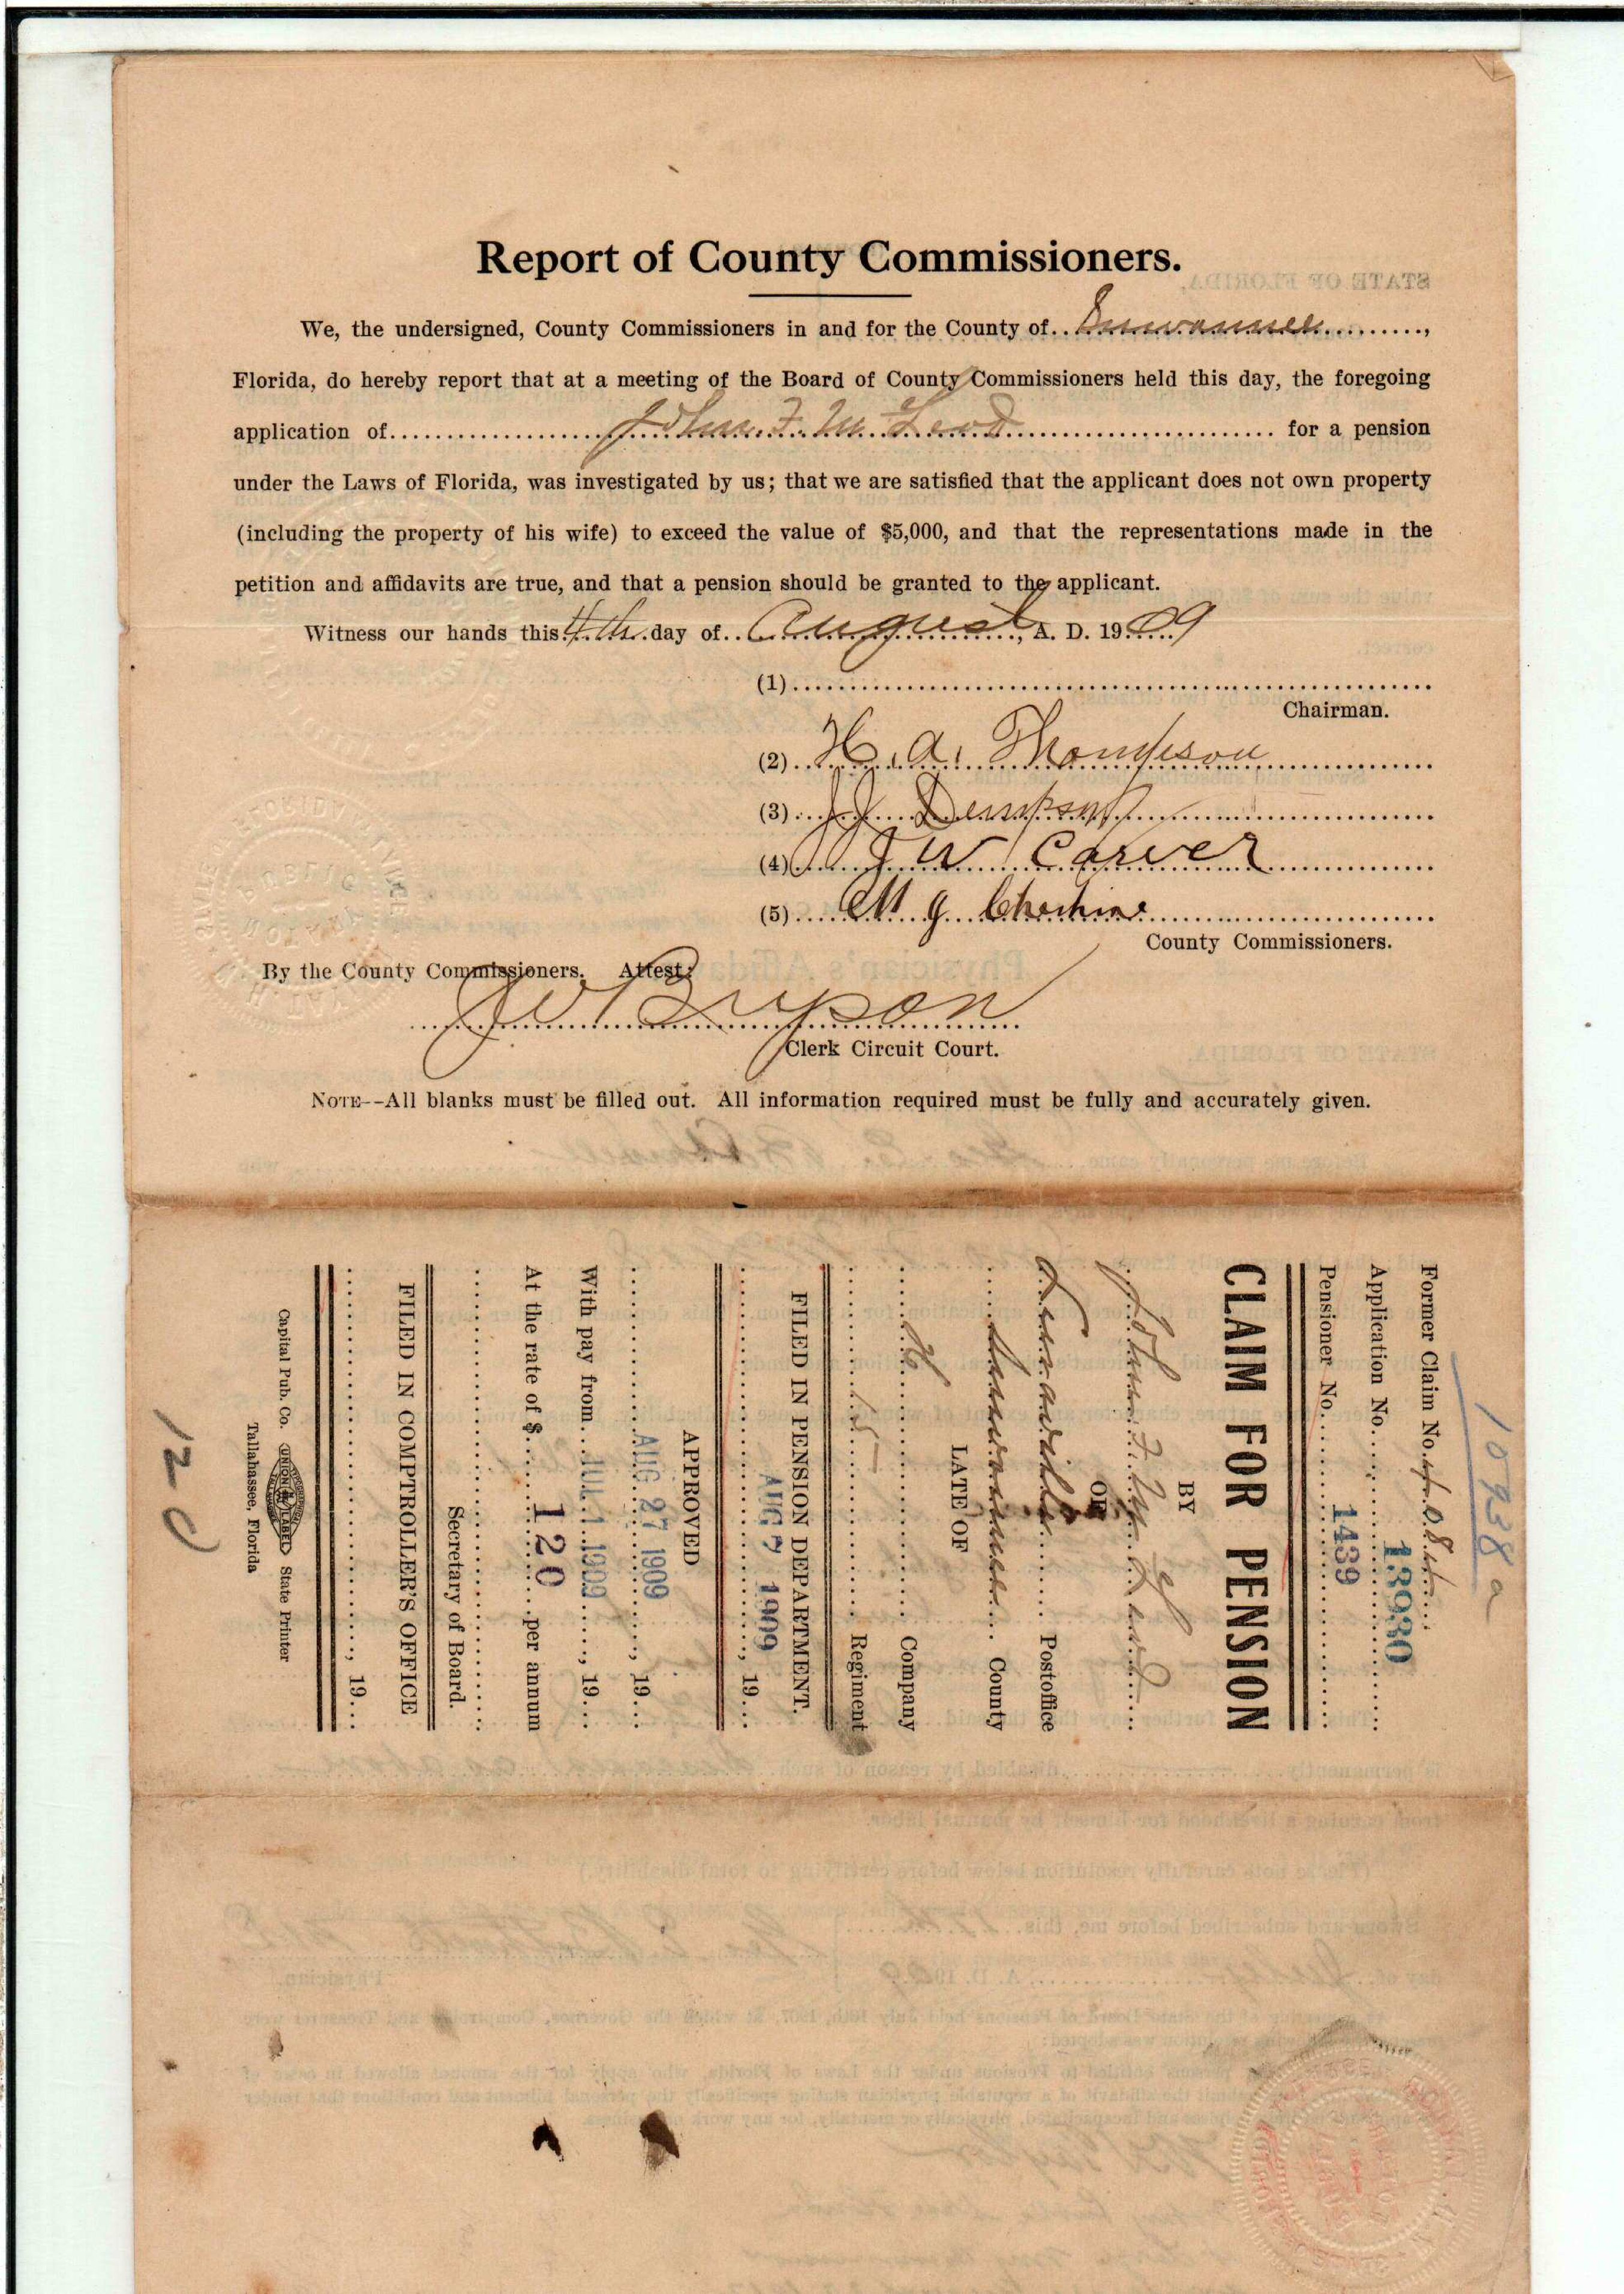 Report of County Commissioners.
We, the undersigned, County Commissioners in and for the County of Suwannee,
Florida, do hereby report that at a meeting of the Board of County Commissioners held this day, the foregoing
application of John F. McLeod for a pension
under the Laws of Florida, was investigated by us; that we are satisfied that the applicant does not own property
(including the property of his wife) to exceed the value of $5,000, and that the representations made in the
petition and affidavits are true, and that a pension should be granted to the applicant.
Witness our hands this 4th day of August, A. D. 1909
(1)
Chairman.
(2) H. A. Thompson
(3) J J Dempsey
(4) J W Carver
(5) M J
County Commissioners.
By the County Commissioners. Attest:
J W Bryson
Clerk Circuit Court.
NOTE--All blanks must be filled out. All information required must be fully and accurately given.
10938 a
Former Claim No.
Application No. 13980
Pensioner No. 1439
CLAIM FOR PENSION
BY
John F. McLeod
OF
Luraville Postoffice
Suwannee County
LATE OF
H Company
15 Regiment
FILED IN PENSION DEPARTMENT.
AUG 7 1909, 19
APPROVED
AUG 27 1909, 19
With pay from JUL 1 1909, 19
At the rate of $ 120 per annum
Secretary of Board.
FILED IN COMPTROLLER'S OFFICE
, 19
Capital Pub. Co. UNION LABEL State Printer
Tallahassee, Florida
120